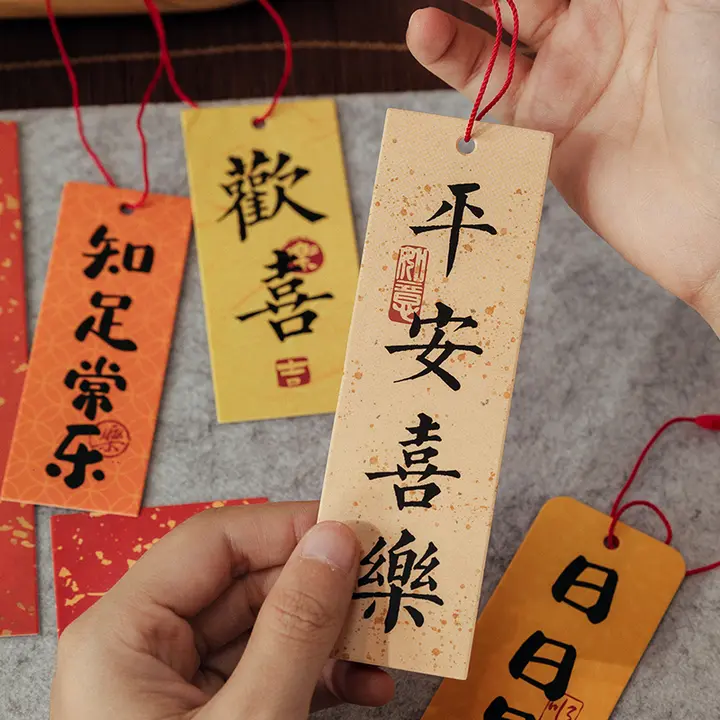 知足常乐
樂
歡喜
樂
吉
平安喜樂
如意
日日